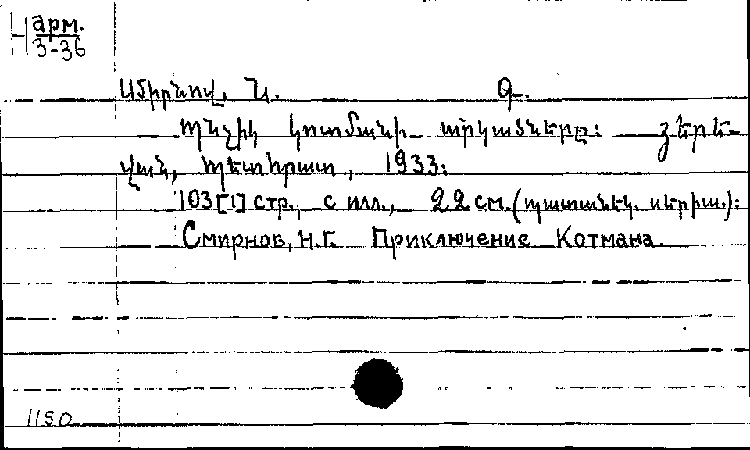 Н арм.
3-36
Սմիրնով, Ն. Գ.
Պնչիկ Կոտմանի արկածները: Յերե-
վան, Պետհրատ, 1933:
103[1] стр., с илл., 22 см. (պատանեկ. սերիա.):
Смирнов, Н.Г. Приключение Котмана.
1150